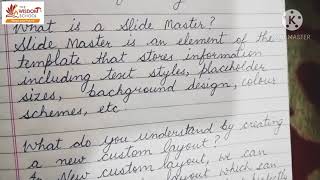 THE
WISDOM
SCHOOL
K
MASTER
What is a Slide Master?
Slide Master is an element of the
template that stores information
including text styles, placeholder
sizes, background design, colour
schemes, etc
What do you understand by creating
a new custom layout?
New custom layout, we can
layout which can